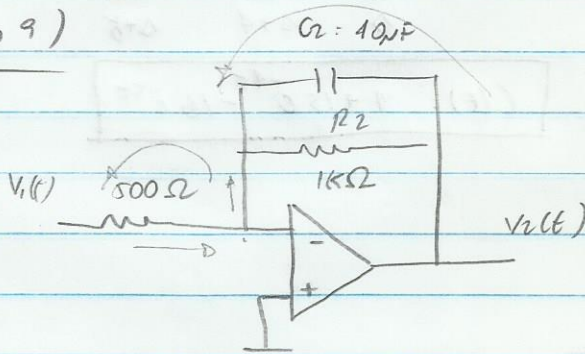 , 9)
C2 = 10μF
R2
1KΩ
V1(t)
500Ω
-
+
V2(t)